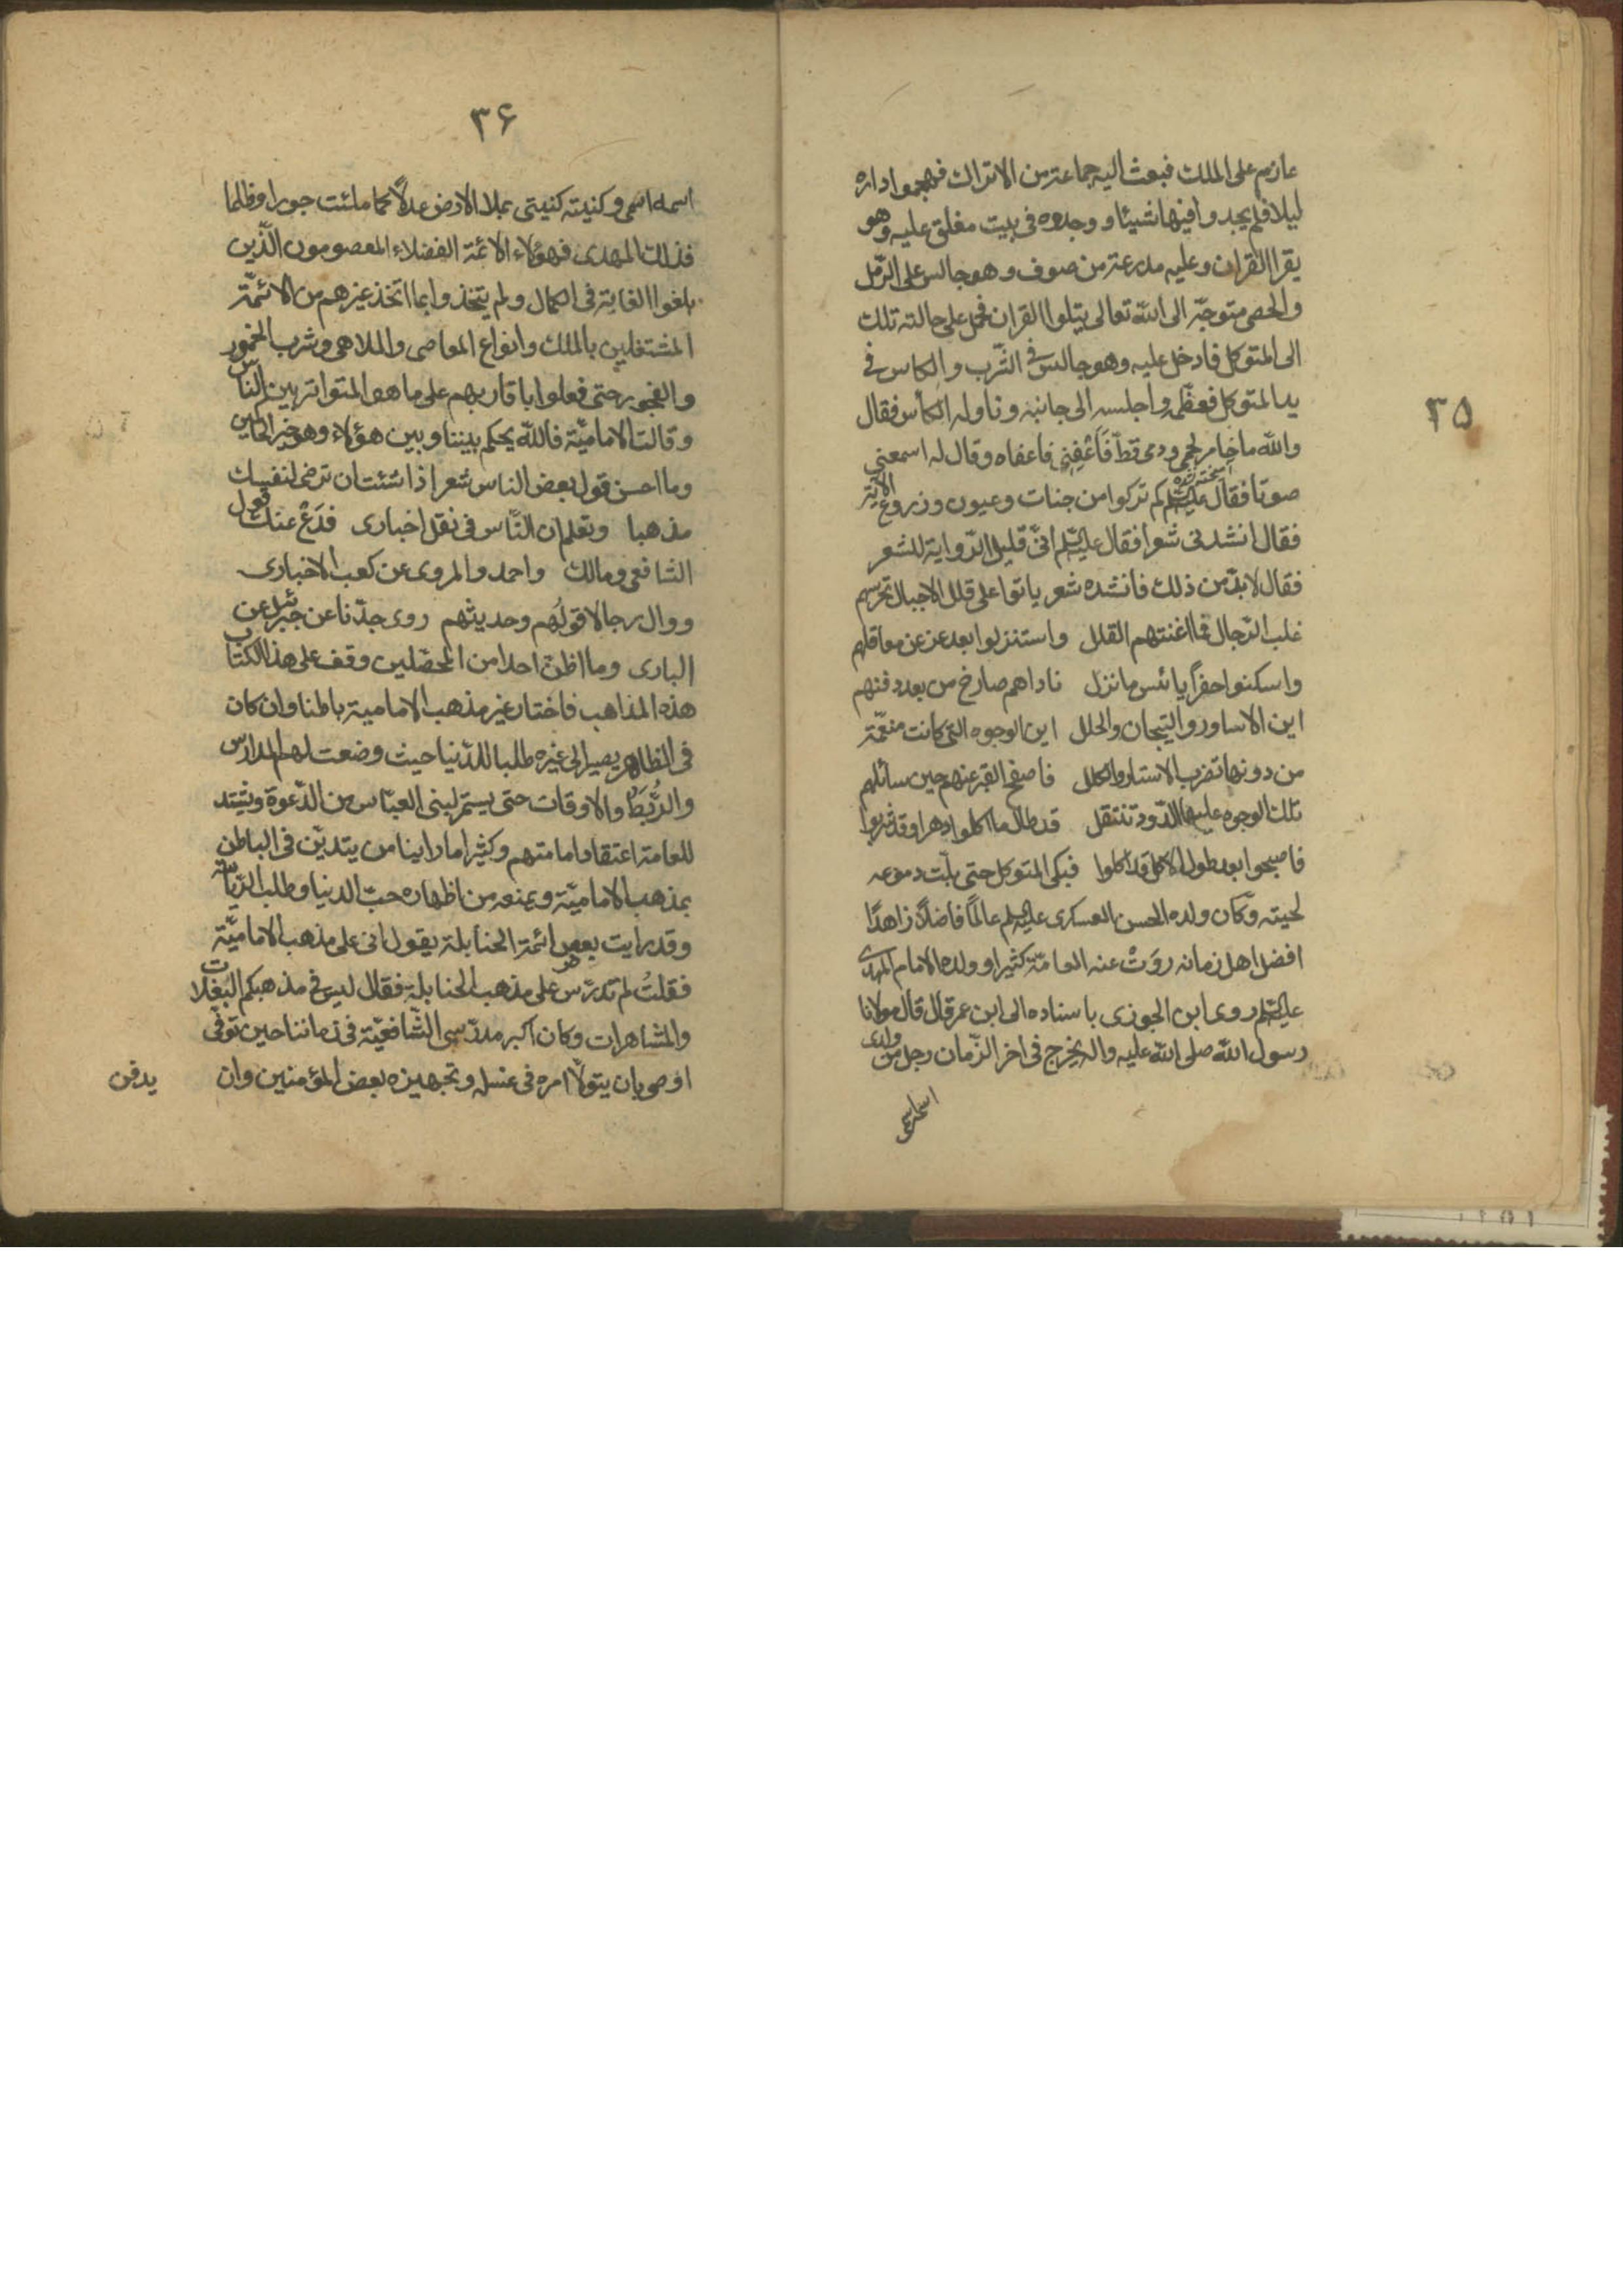 ۳۵
عازم على الملك فبعث اليه جماعة من الاتراك فهجموا داره
ليلا فلم يجدوا فيها شيئا و وجدوه فى بيت مغلق عليه وهو
يقرا القران وعليه مدرعة من صوف وهو جالس على الرّمل
والحصى متوجّه الى الله تعالى يتلوا القران فحمل على حالته تلك
الى المتوكل فادخل عليه وهو جالس فى الشّرب والكاس فى
يد المتوكل فعظّمه واجلسه الى جانبه وناوله الكأس فقال
والله ما خامر لحمى ودمى قطّ فَاَعْفِنِى فاعفاه وقال له اسمعنى
صوتا فقال عليه السلم كم تركوا من جنات وعيون وزروع الاية
فقال انشدنى شعرا فقال عليه السلم انّى قليل الرّواية للشعر
فقال لا بدّ من ذلك فانشده شعر باتوا على قلل الاجبال تحرسهم
غلب الرّجال فما اغنتهم القلل واستنزلوا بعد عز عن معاقلهم
واسكنوا حفرًا يا بئس ما نزل ناداهم صارخ من بعد دفنهم
اين الاساور والتيجان والحلل اين الوجوه التى كانت منعّمة
من دونها تضرب الاستار والكلل فافصح القبر عنهم حين سائلهم
تلك الوجوه عليها الدّود تنتقل قد طال ما اكلوا دهرا وقد شربوا
فاصبحوا بعد طول الاكل قد اكلوا فبكى المتوكل حتى بلّت دموعه
لحيته وكان ولده الحسن العسكرى عليه السلم عالمًا فاضلاً زاهدًا
افضل اهل زمانه روَتْ عنه العامّة كثيرا وولده الامام المهدى
عليه السلم روى ابن الجوزى باسناده الى ابن عمر قال قال مولانا
رسول الله صلى الله عليه واله يخرج فى اخر الزّمان رجل من ولدى
اسمه اسمى
۳۶
اسمه اسمى وكنيته كنيتى يملا الارض عدلاً كما ملئت جورا وظلما
فذلك المهدى فهؤلاء الائمّة الفضلاء المعصومون الّذين
بلغوا الغاية فى الكمال ولم يتخذوا ما اتخذ غيرهم من الائمّة
المشتغلين بالملك وانواع المعاصى والملاهى وشرب الخمور
والفجور حتى فعلوا باقاربهم على ما هو المتواتر بين النّاس
وقالت الاماميّة فالله يحكم بيننا وبين هؤلاء وهو خير الحاكمين
وما احسن قول بعض الناس شعر اذا شئت ان ترضى لنفسك
مذهبا وتعلم ان النّاس فى نقل اخبارى فدَعْ عنك قول
الشافعى ومالك واحمد والمروى عن كعب الاخبارى
ووال رجالا قولُهم وحديثهم روى جدّنا عن جبرئيل عن
البارى وما اظنّ احدا من المحصّلين وقف على هذا الكتاب
هذه المذاهب فاختار غير مذهب الامامية باطنا وان كان
فى الظاهر يصير الى غيره طلبا للدّنيا حيث وضعت لهم المدارس
والرُّبَط والاوقات حتى يستمر لبنى العبّاس من الدّعوة ويشتد
للعامة اعتقاد امامتهم وكثيرا ما راينا من يتديّن فى الباطن
بمذهب الاماميّة ويمنعه من اظهاره حبّ الدنيا وطلب الرّياسة
وقد رايت بعض ائمة الحنابلة يقول انى على مذهب الاماميّة
فقلتُ لم تدرّس على مذهب الحنابلة فقال ليس فى مذهبكم البغلات
والمشاهرات وكان اكبر مدرّسى الشّافعيّة فى زماننا حين توفّى
اوصى بان يتولّا امره فى غسله وتجهيزه بعض المؤمنين وان
يدفن